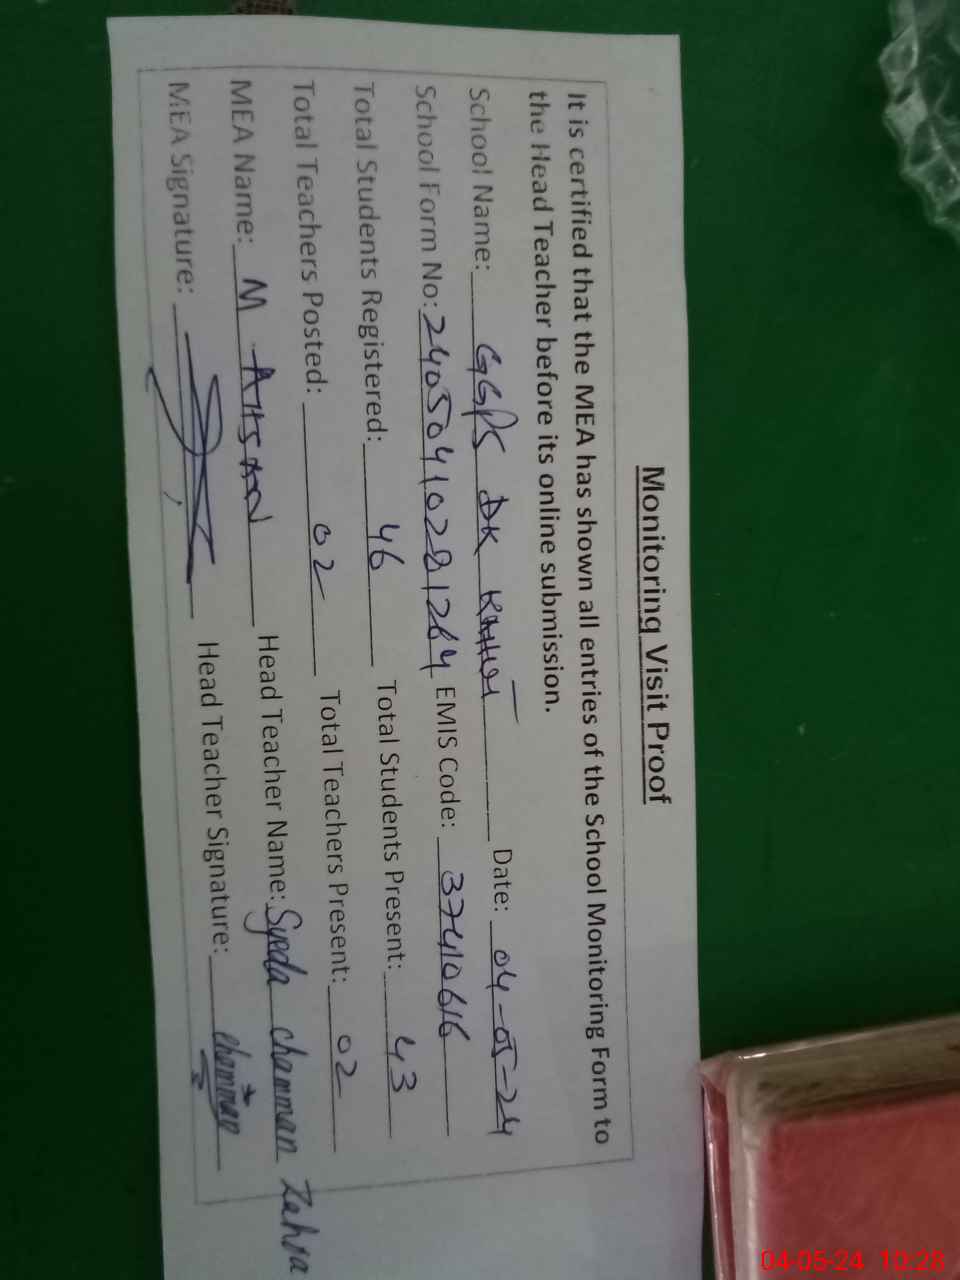 Monitoring Visit Proof
It is certified that the MEA has shown all entries of the School Monitoring Form to
the Head Teacher before its online submission.
School Name: GGPS DK Date: 04-05-24
School Form No: 24050410281264 EMIS Code: 37410616
Total Students Registered: 46 Total Students Present: 43
Total Teachers Posted: 02 Total Teachers Present: 02
MEA Name: M AHSAN Head Teacher Name: Syeda chamman Zahra
MEA Signature: Head Teacher Signature: chamman
04-05-24 10:28